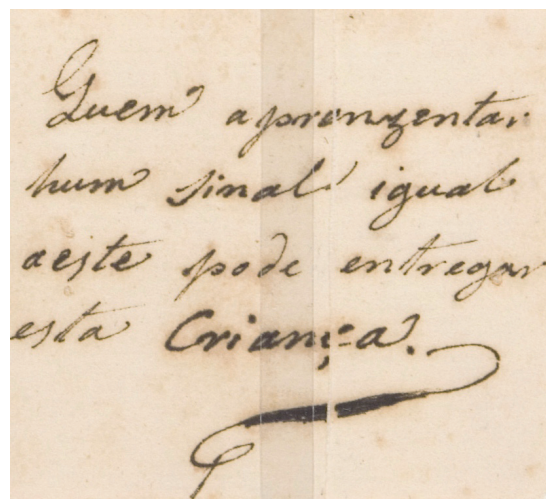 Quem apronzentar
hum sinal igual
aeste pode entregar
esta Criança.